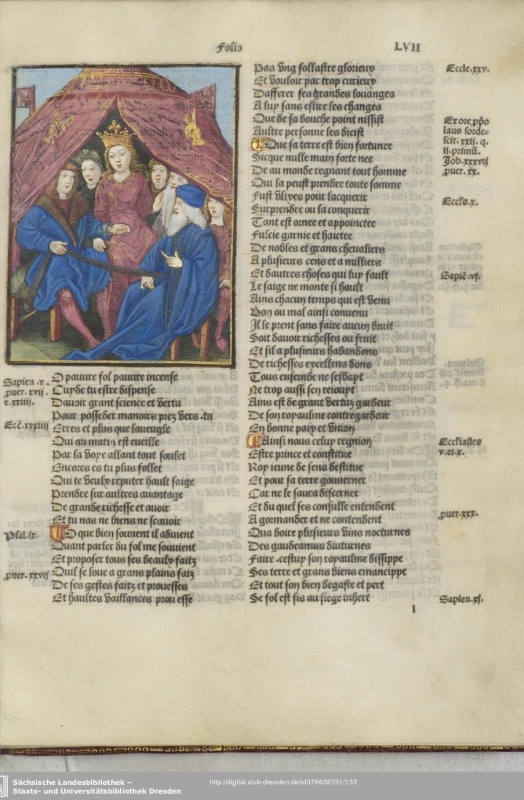 Folio
LVII
O pauure fol pauure insense
Cuyde tu estre dispense
Dauoir grant science et Vertu
Pour posseder manoirs prez Vers -tu
Erres et plus que laueugle
Qui au matin est cueille
Par la Voye allant tout seulet
Encores es tu plus follet
Qui te Veulx reputer hault saige
Prendre sur aultres auantage
De grande richesse et auoir
Et tu nas ne biens ne scauoir
O que bien souuent il aduient
Quant parler du fol me souuient
Et proposer tous ses beaulx faitz
Quil se loue a grans plains faitz
De ses gestes faitz et prouesses
Et haultes Vaillances
Sapien. v.
puer. xvii
t. xxiiii.
Eccl. xxxiiii
Psal. ix.
puer. xxvii
Pas Vng follastre glorieux
Et Vouloir par trop curieux
Dafferer ses grandes louanges
A luy sans eslire les changes
Que de sa bouche point nissist
Aultre personne les dicist
Que sa terre est bien fortunee
Sicque nulle main forte nee
De au monde regnant tout homme
Qui la peust prendre toute somme
Fust Vlixes pour lacquerir
Surprendre ou la conquerir
Tant est amee et appoinctee
Fulcie garnie et haictee
De nobles et grans cheualiers
A plusieurs cens et a milliers
Et haultres choses qui luy fault
Le saige ne monte si hault
Ains chacun temps qui est Venu
Bon ou mal ainsi conuenu
Il le prent sans faire aucun bruit
Soit dauoir richesses ou fruit
Et sil a plusieurs habandons
De richesses excellens dons
Tous ensemble ne sesioyt
Ne trop aussi sen resioyt
Ains est de grant Vertuz gardeur
De son royaulme contregardeur
En bonne paix et Vnion
Ainsi nous celuy regnion
Estre prince et constitue
Roy ieune de sens destitue
Et pour sa terre gouuerner
Car ne le saura discerner
Et du quel ses consulle entendent
A gormander et ne contendent
Qua boire plusieurs Vins nocturnes
Des gaudeamus diuturnes
Faire. cestuy son royaulme dissippe
Ses terre et grans biens emancippe
Et tout son bien degaste et pert
Se fol est sis au siege inhere
Eccle. xxv.
Job. xxxvii
puer. xx.
Eccles. x.
Sapie. vi.
Ecclesiastes
v. et. x.
puer. xxx.
Sapien. xi.
l
Sächsische Landesbibliothek –
Staats- und Universitätsbibliothek Dresden
http://digital.slub-dresden.de/id378636731/133